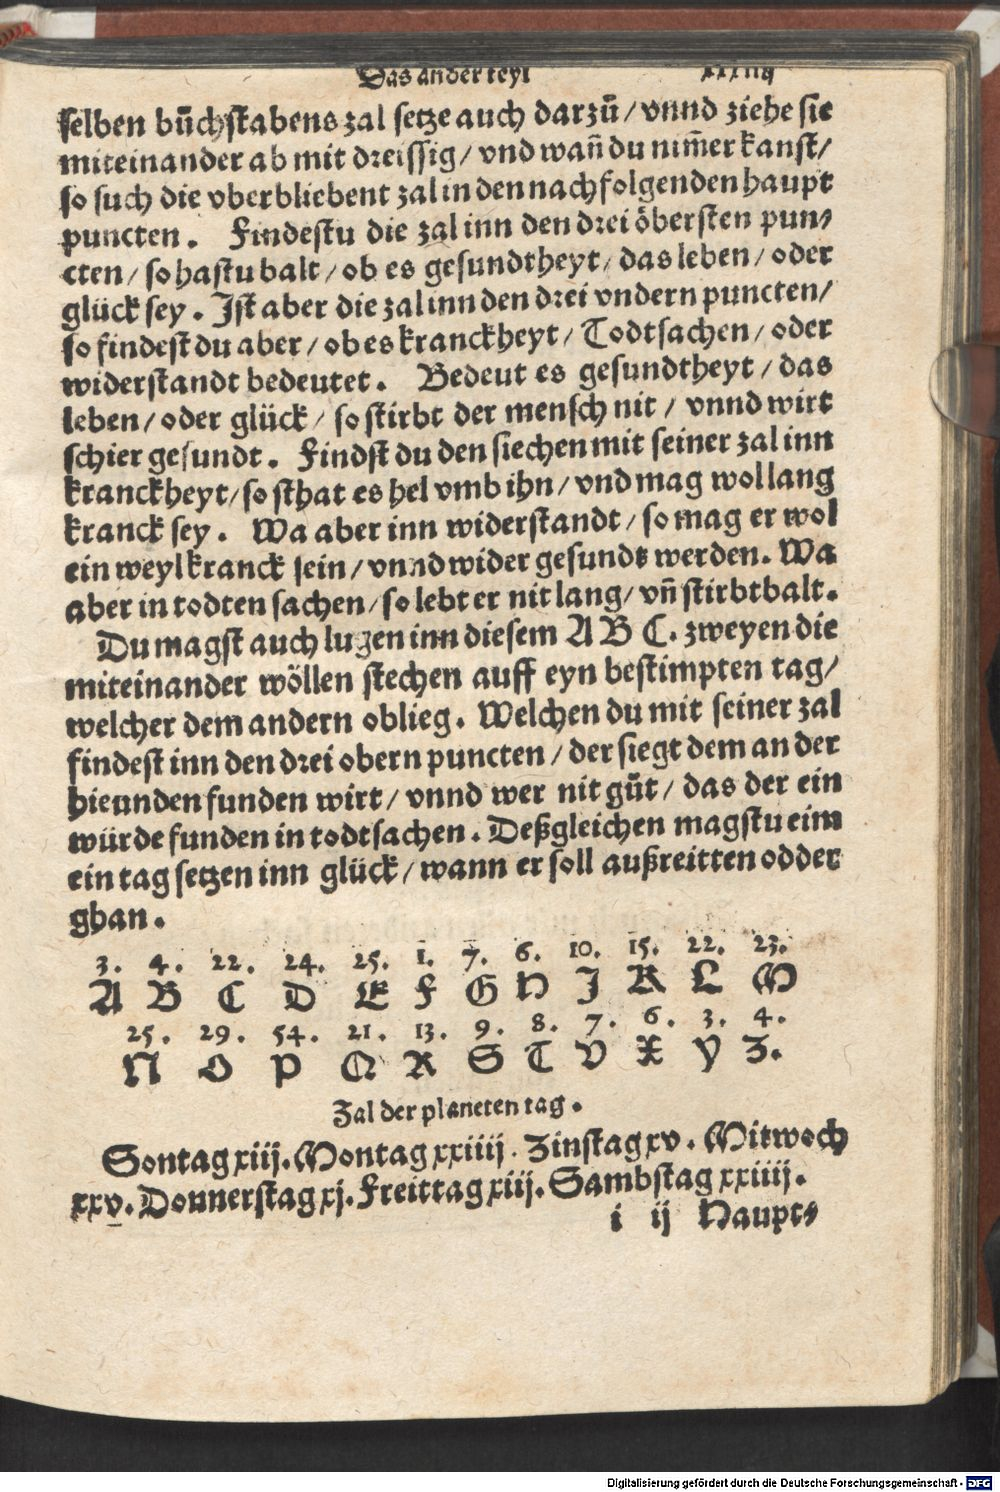 Das ander teyl
selben bůchstabens zal setze auch darzů / vnnd ziehe sie
miteinander ab mit dreissig / vnd wañ du nim̃er kanst /
so such die vberbliebent zal in den nachfolgenden haupt
puncten. Findestu die zal inn den drei öbersten pun⸗
cten / so hastu balt / ob es gesundtheyt / das leben / oder
glück sey. Ist aber die zal inn den drei vndern puncten /
so findest du aber / ob es kranckheyt / Todtsachen / oder
widerstandt bedeutet. Bedeut es gesundtheyt / das
leben / oder glück / so stirbt der mensch nit / vnnd wirt
schier gesundt. Findst du den siechen mit seiner zal inn
kranckheyt / so sthat es hel vmb ihn / vnd mag wol lang
kranck sey. Wa aber inn widerstandt / so mag er wol
ein weyl kranck sein / vnnd wider gesundt werden. Wa
aber in todten sachen / so lebt er nit lang / vñ stirbt balt.
Du magst auch lugen inn diesem A B C. zweyen die
miteinander wöllen stechen auff eyn bestimpten tag /
welcher dem andern oblieg. Welchen du mit seiner zal
findest inn den drei obern puncten / der siegt dem an der
hieunden funden wirt / vnnd wer nit gůt / das der ein
würde funden in todtsachen. Deßgleichen magstu eim
ein tag setzen inn glück / wann er soll außreitten odder
ghan.
3. 4. 22. 24. 25. 1. 7. 6. 10. 15. 22. 23.
A B C D E F G H I K L M
25. 29. 54. 21. 13. 9. 8. 7. 6. 3. 4.
N O P Q R S T V X Y Z.
Zal der planeten tag.
Sontag xiij. Montag xxiiij. Zinstag xv. Mitwoch
xxv. Donnerstag xj. Freittag xiij. Sambstag xxiiij.
i ij Haupt⸗
Digitalisierung gefördert durch die Deutsche Forschungsgemeinschaft - DFG